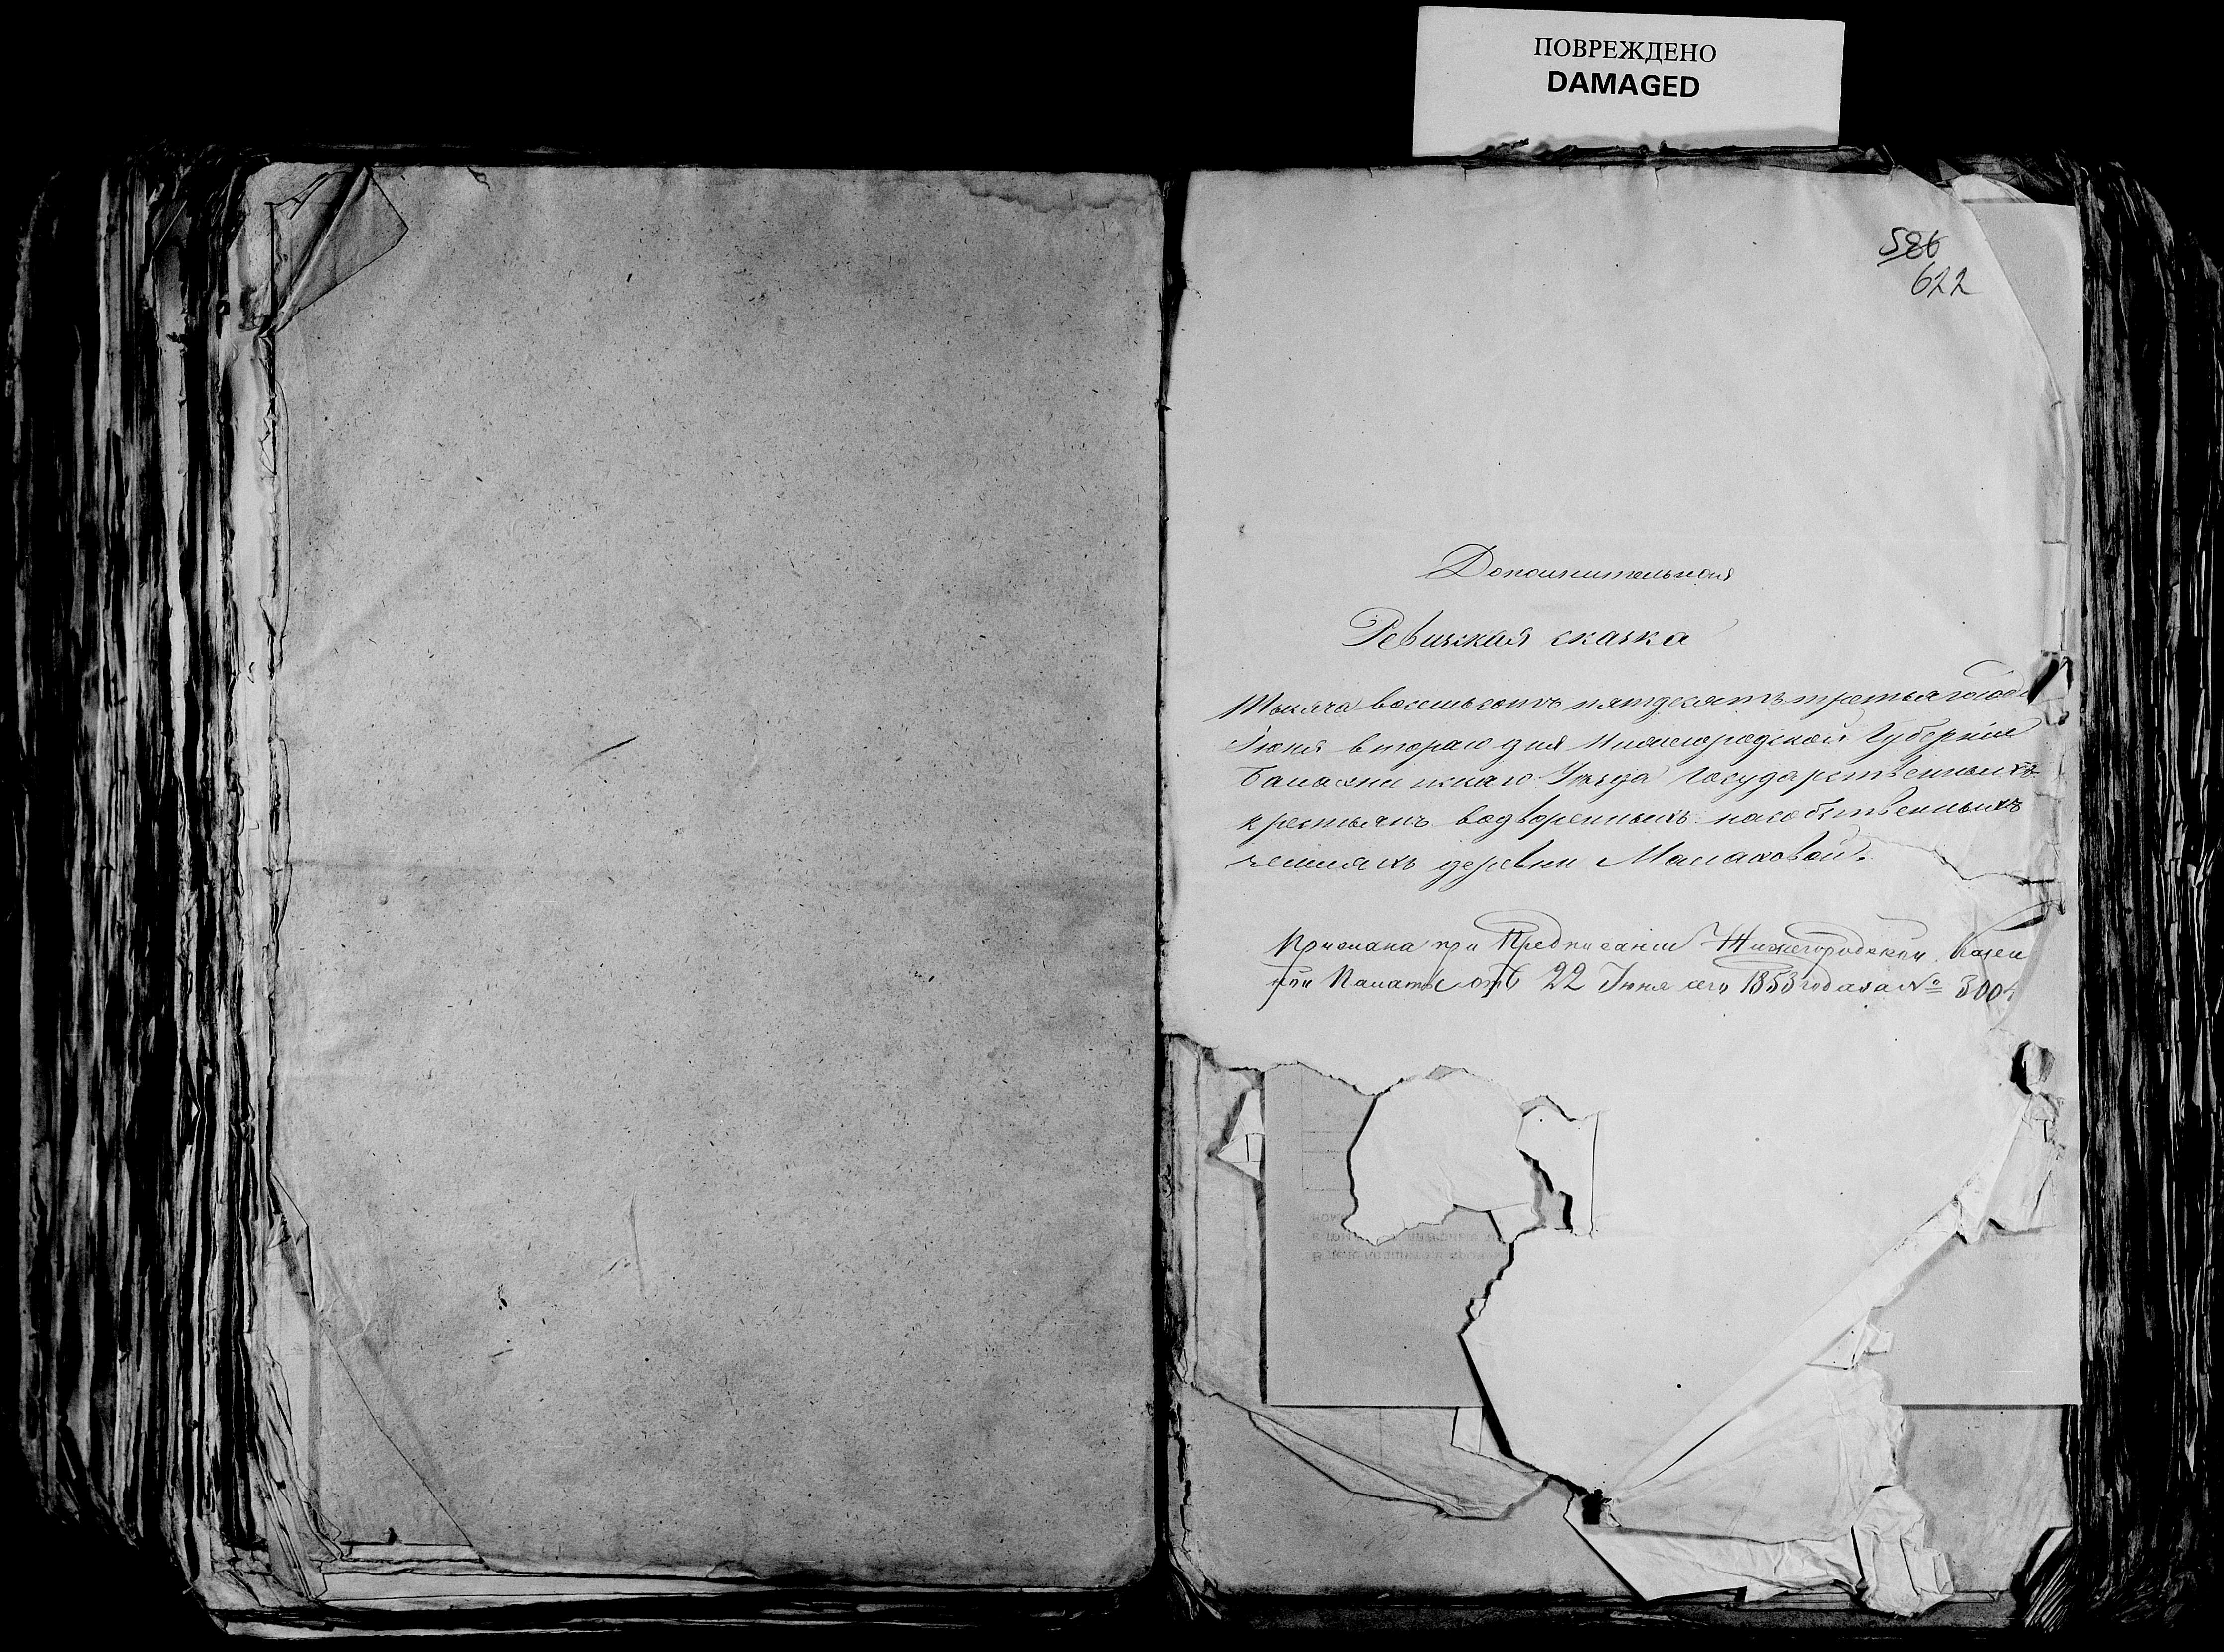 ПОВРЕЖДЕНО
DAMAGED
586
622
Дополнительная
Ревизкая сказка
Тысяча восемьсотъ пятдесятъ третьяго года
Іюня втораго дня Нижегородской Губерніи
Балахнинскаго Уѣзда Государственныхъ
крестьянъ водворенныхъ на собственныхъ
земляхъ деревни Малаховой.
Прислана при Предписании Нижегородский Казен
ной Палаты отъ 22 Іюня сего 1853 года за №